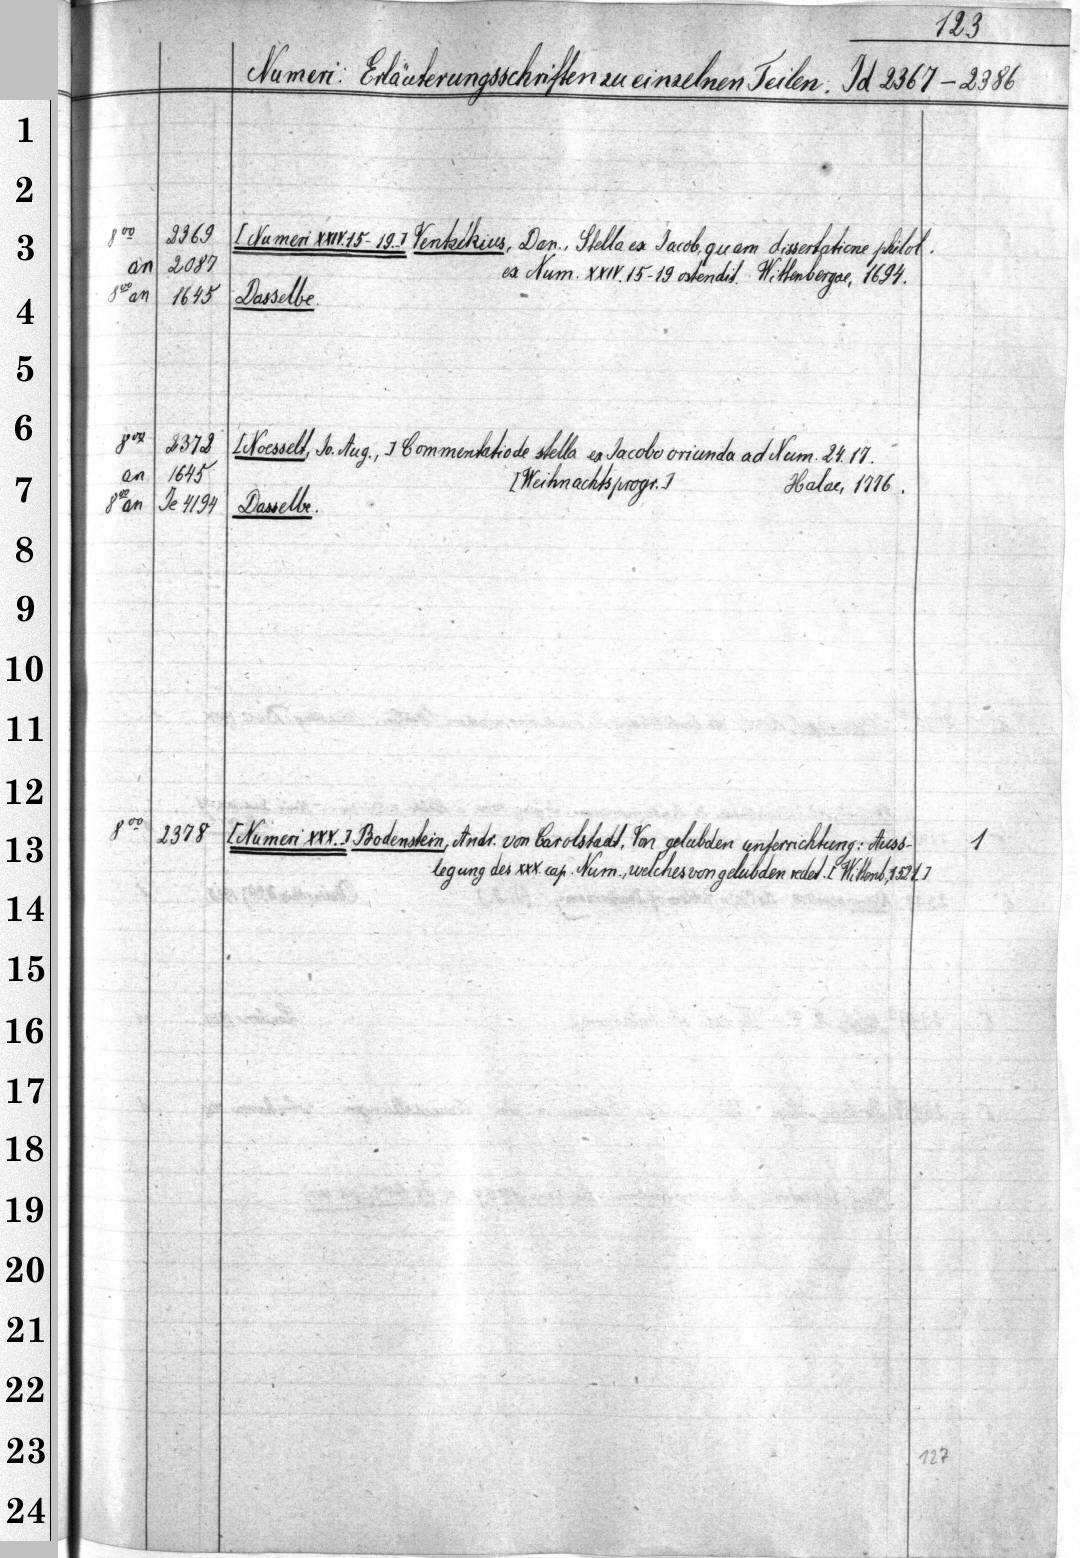 123
Numeri: Erläuterungsschriften zu einzelnen Teilen. Id 2367 – 2386
1
2
3
8vo 2369 [Numeri XXIV.15-19.] Ventzkius, Dan., Stella ex Jacob, quam dissertatione philol.
an 2087 ex Num. XXIV. 15-19 ostendit. Wittenbergae, 1694.
8vo an 1645 Dasselbe.
4
5
6
8vo 2372 [Noesselt, Jo. Aug.,] Commentatio de stella ex Jacobo oriunda ad Num. 24.17.
an 1645 [Weihnachtsprogr.] Halae, 1776.
7
8vo an Je 4194 Dasselbe.
8
9
10
11
12
8vo 2378 [Numeri XXX.] Bodenstein, Andr. von Carolstadt, Von gelubden unterrichtung: Auss- 1
13
legung des XXX cap. Num., welches von gelubden redet. [Wittenb., 1521.]
14
15
16
17
18
19
20
21
22
23
127
24